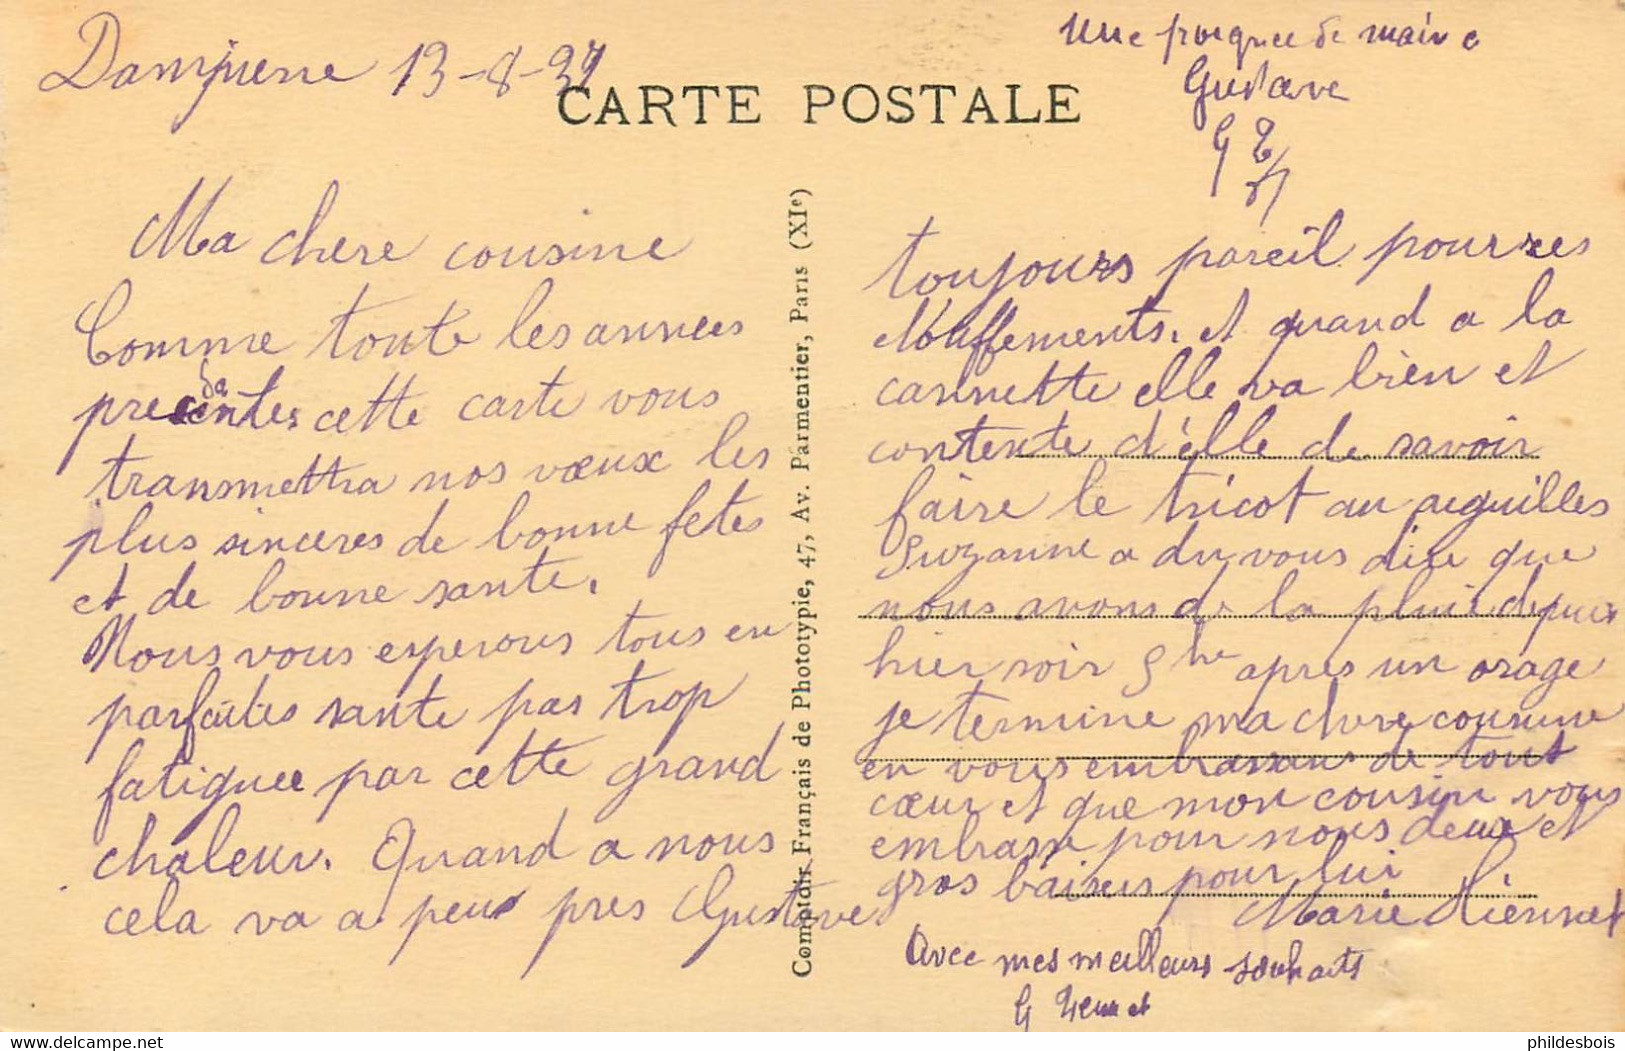 Dampierre 13-8-37
CARTE POSTALE
Une poignee de main e
Gustave
Ma chere cousine
Comme toute les annees
precedentes cette carte vous
transmettra nos vœux les
plus sinceres de bonne fetes
et de bonne sante.
Nous vous esperons tous en
parfaites sante pas trop
fatiguee par cette grand
chaleur. Quand a nous
cela va a peu pres Gustave
Comptoir Français de Phototypie, 47, Av. Parmentier, Paris (XIe)
toujours pareil pour ses
etouffements. et quand a la
cannette elle va bien et
contente d'elle de savoir
faire le tricot au aiguilles
Suzanne a du vous dire que
nous avons de la pluie depuis
hier soir 5 he apres un orage
je termine ma chere cousine
en vous embrassans de tout
cœur et que mon cousin vous
embrasse pour nous deux et
gros baisers pour lui
Marie
Avec mes meilleurs souhaits
G
phildesbois